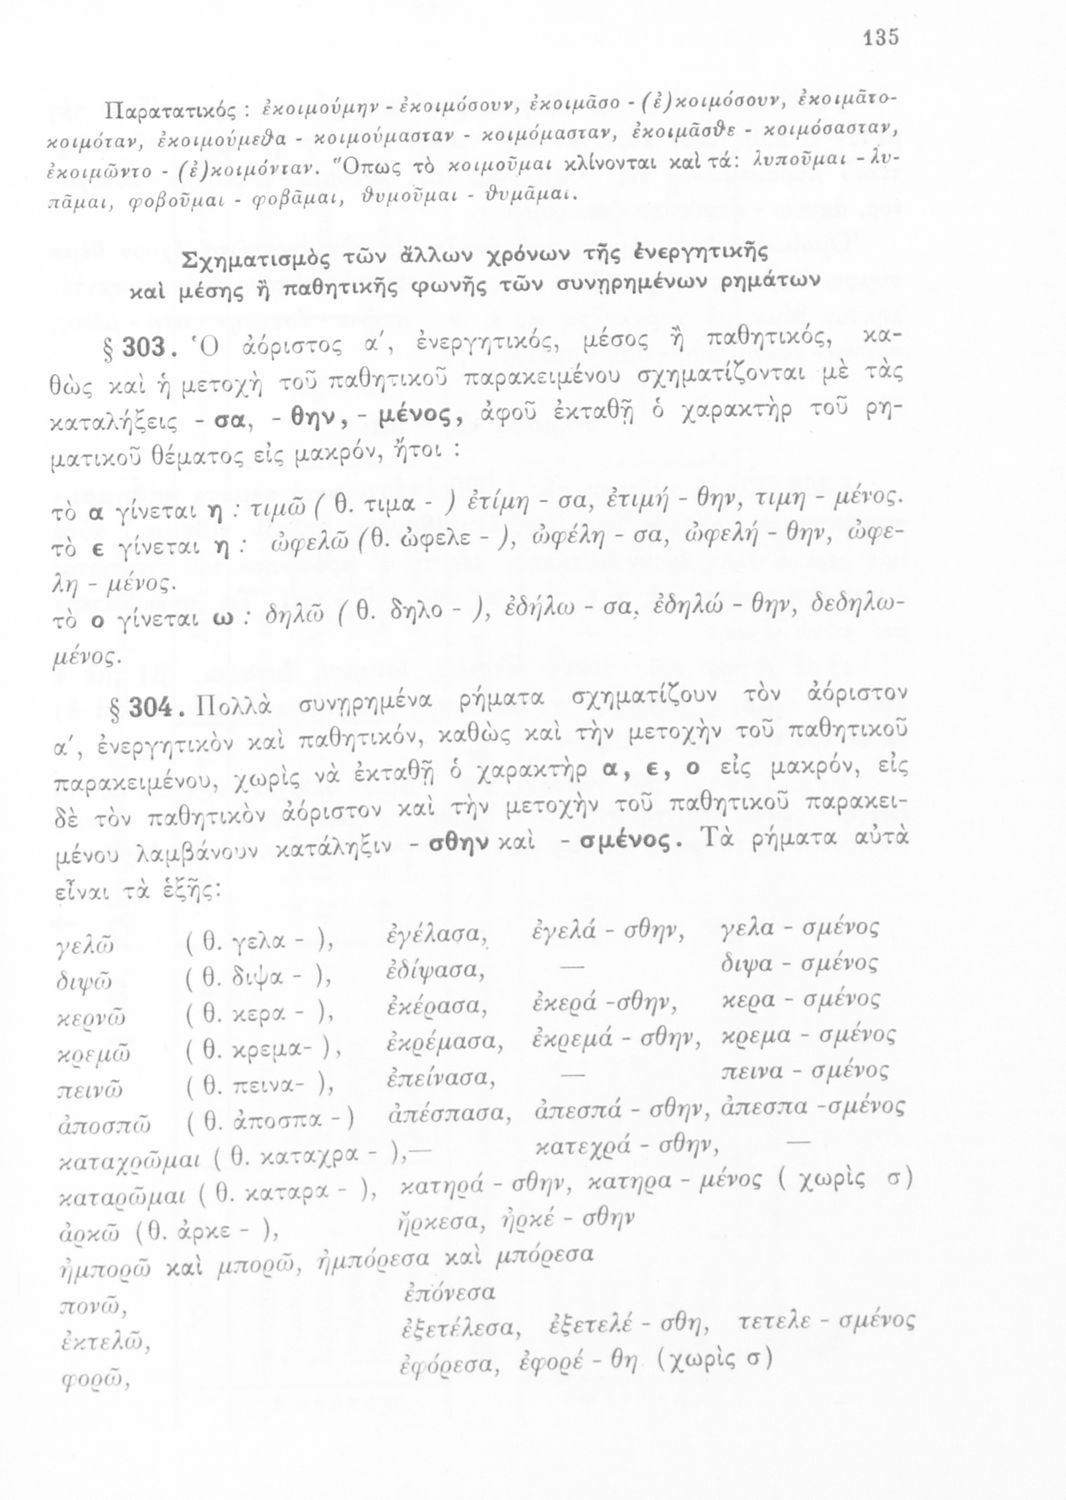 135
Παρατατικός : ἐκοιμούμην - ἐκοιμόσουν, ἐκοιμᾶσο - (ἐ)κοιμόσουν, ἐκοιμᾶτο-
κοιμόταν, ἐκοιμούμεθα - κοιμούμασταν - κοιμόμασταν, ἐκοιμᾶσθε - κοιμόσασταν,
ἐκοιμῶντο - (ἐ)κοιμόνταν. Ὅπως τὸ κοιμοῦμαι κλίνονται καὶ τά: λυποῦμαι - λυ-
πᾶμαι, φοβοῦμαι - φοβᾶμαι, θυμοῦμαι - θυμᾶμαι.
Σχηματισμὸς τῶν ἄλλων χρόνων τῆς ἐνεργητικῆς
καὶ μέσης ἢ παθητικῆς φωνῆς τῶν συνῃρημένων ρημάτων
§ 303. Ὁ ἀόριστος α', ἐνεργητικός, μέσος ἢ παθητικός, κα-
θὼς καὶ ἡ μετοχὴ τοῦ παθητικοῦ παρακειμένου σχηματίζονται μὲ τὰς
καταλήξεις - σα, - θην, - μένος, ἀφοῦ ἐκταθῇ ὁ χαρακτὴρ τοῦ ρη-
ματικοῦ θέματος εἰς μακρόν, ἤτοι :
τὸ α γίνεται η : τιμῶ ( θ. τιμα - ) ἐτίμη - σα, ἐτιμή - θην, τιμη - μένος.
τὸ ε γίνεται η : ὠφελῶ (θ. ὠφελε - ), ὠφέλη - σα, ὠφελή - θην, ὠφε-
λη - μένος.
τὸ ο γίνεται ω : δηλῶ ( θ. δηλο - ), ἐδήλω - σα, ἐδηλώ - θην, δεδηλω-
μένος.
§ 304. Πολλὰ συνῃρημένα ρήματα σχηματίζουν τὸν ἀόριστον
α', ἐνεργητικὸν καὶ παθητικόν, καθὼς καὶ τὴν μετοχὴν τοῦ παθητικοῦ
παρακειμένου, χωρὶς νὰ ἐκταθῇ ὁ χαρακτὴρ α, ε, ο εἰς μακρόν, εἰς
δὲ τὸν παθητικὸν ἀόριστον καὶ τὴν μετοχὴν τοῦ παθητικοῦ παρακει-
μένου λαμβάνουν κατάληξιν - σθην καὶ - σμένος. Τὰ ρήματα αὐτὰ
εἶναι τὰ ἑξῆς:
γελῶ ( θ. γελα - ), ἐγέλασα, ἐγελά - σθην, γελα - σμένος
διψῶ ( θ. διψα - ), ἐδίψασα, — διψα - σμένος
κερνῶ ( θ. κερα - ), ἐκέρασα, ἐκερά -σθην, κερα - σμένος
κρεμῶ ( θ. κρεμα- ), ἐκρέμασα, ἐκρεμά - σθην, κρεμα - σμένος
πεινῶ ( θ. πεινα- ), ἐπείνασα, — πεινα - σμένος
ἀποσπῶ ( θ. ἀποσπα -) ἀπέσπασα, ἀπεσπά - σθην, ἀπεσπα -σμένος
καταχρῶμαι ( θ. καταχρα - ),— κατεχρά - σθην, —
καταρῶμαι ( θ. καταρα - ), κατηρά - σθην, κατηρα - μένος ( χωρὶς σ)
ἀρκῶ (θ. ἀρκε - ), ἤρκεσα, ἠρκέ - σθην
ἠμπορῶ καὶ μπορῶ, ἠμπόρεσα καὶ μπόρεσα
πονῶ, ἐπόνεσα
ἐκτελῶ, ἐξετέλεσα, ἐξετελέ - σθη, τετελε - σμένος
φορῶ, ἐφόρεσα, ἐφορέ - θη (χωρὶς σ)